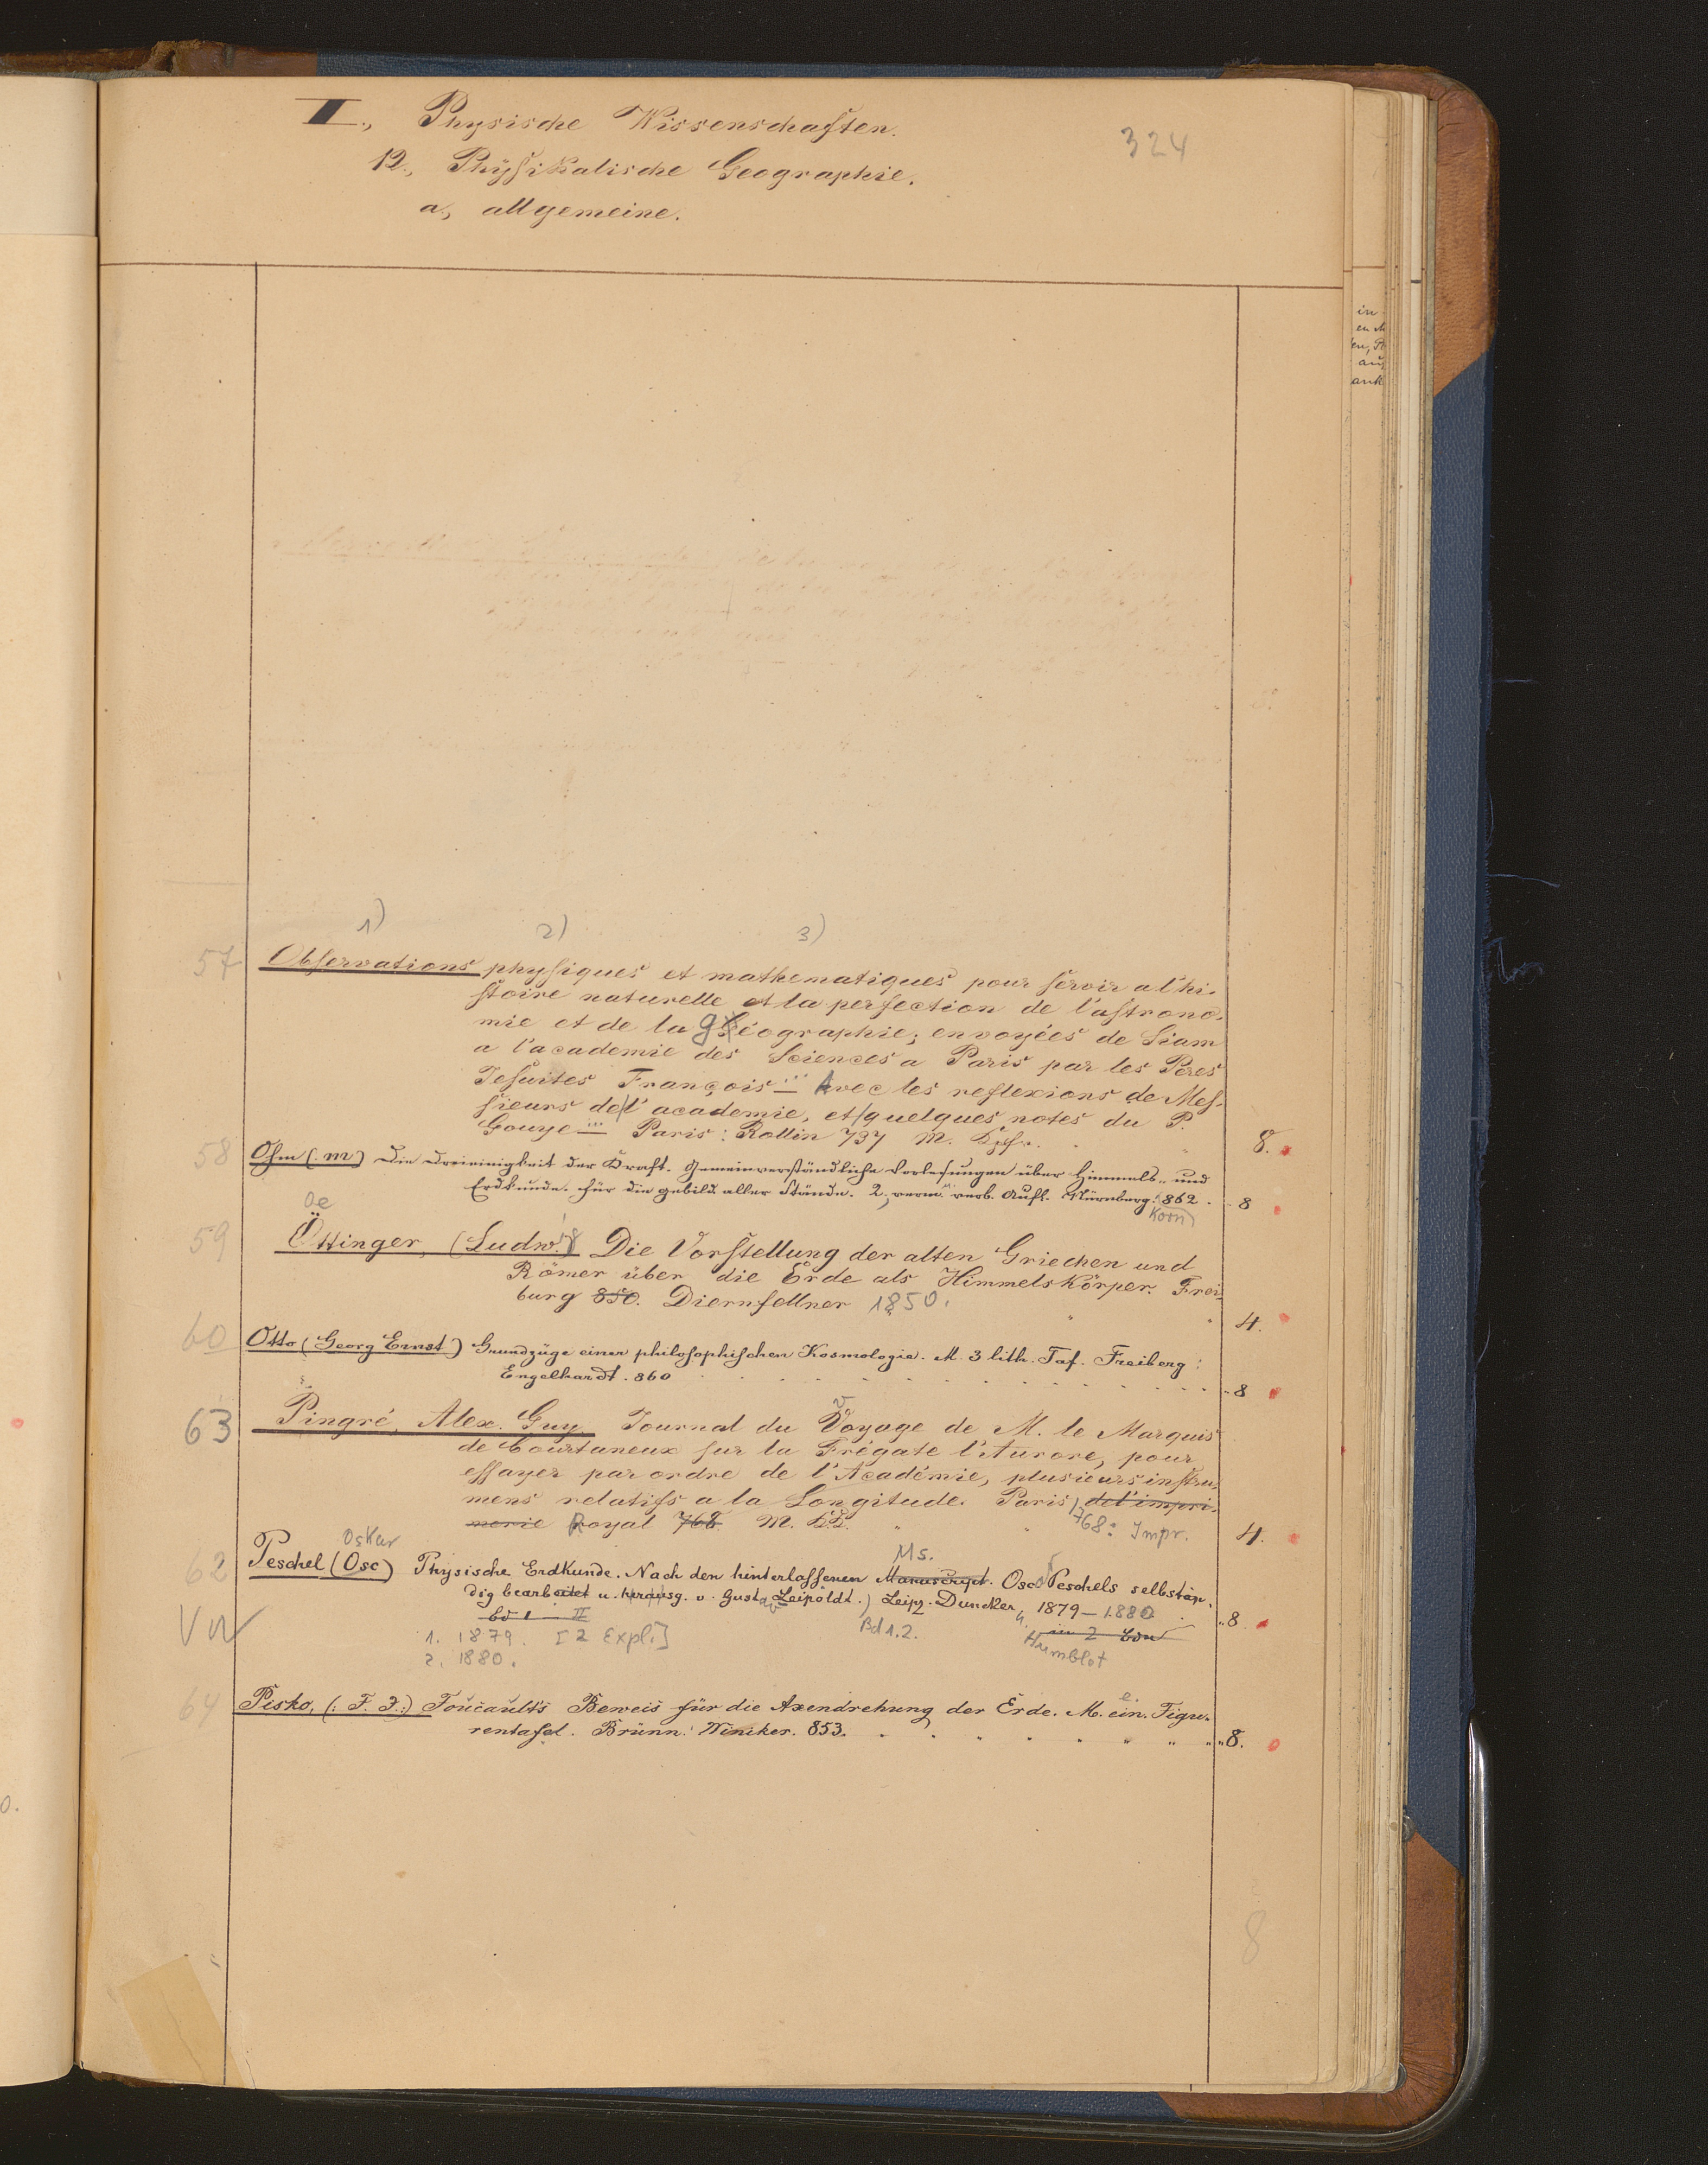 I., Physische Wissenschaften.
324
12., Physikalische Geographie.
a, allgemeine.
1) 2) 3)
57 Observations physiques et mathematiques pour servir a l'hi-
stoire naturelle et la perfection de l'astrono-
mie et de la géographie; envoyées de Siam
a l'academie des Sciences a Paris par les Peres
Jesuites François ... Avec les reflexions de Mes-
sieurs de l'academie, et quelques notes du P.
Gouye ... Paris: Rollin 737 M. Kpfr. 8.
58 Ohm (: M) Die Dreieinigkeit der Kraft. Gemeinverständliche Vorlesungen über Himmels- und
Erdkunde. für die gebild. aller Stände. 2, verm. u. verb. Aufl. Nürnberg: 862. 8
Korn
Oe
59 Öttinger, (Ludwig) Die Vorstellung der alten Griechen und
Römer über die Erde als Himmelskörper. Frei-
burg 850. Diernfellner 1850. 4.
60 Otto (Georg Ernst) Grundzüge einer philosophischen Kosmologie. M. 3 lith. Taf. Freiberg:
Engelhardt. 860 8
63 Pingré, Alex. Guy. Journal du Voyage de M. le Marquis
de Courtaneux sur la Frégate l'Aurore, pour
essayer par ordre de l'Académie, plusieurs instru-
mens relatifs a la Longitude. Paris, de l'impri-
merie Royal 768. M. KK. 768: Impr. 4.
Oskar Ms.
62 Peschel (Osc) Physische Erdkunde. Nach den hinterlassenen Manuscript. Osc Peschels selbstän-
dig bearbeitet u. herausg. v. Gustav Leipoldt.) Leipz. Duncker, 1879–1880 8
VW Bd I — II Bd 1.2. in 2 Bdn
1. 1879. [2 Expl.] Humblot
2. 1880.
64 Pisko, (: F. J.:) Foucault's Beweis für die Axendrehung der Erde. M. ein. Figu-
rentafel. Brünn: Winiker. 853. 8.
8